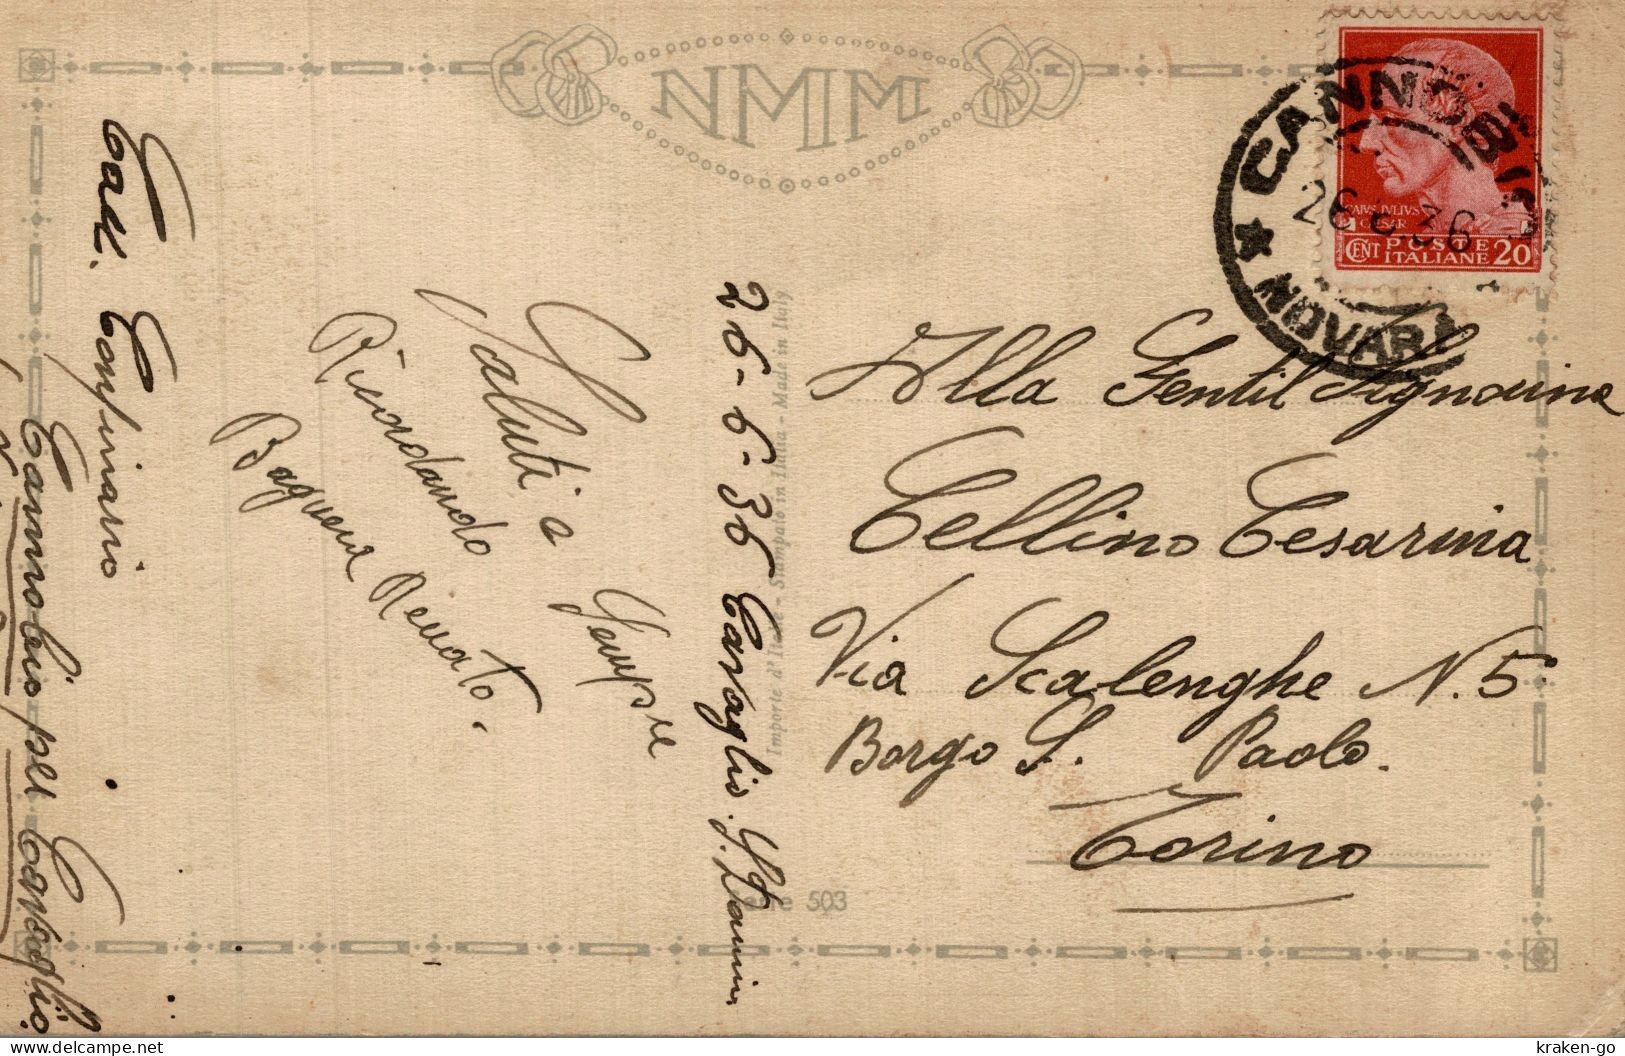 NMM
CANNOBIO
NOVARA
26.6.36
CAIVS IVLIVS
CAESAR
CENT POSTE ITALIANE 20
Alla Gentil Signorina
Cellino Cesarina
Via Scalenghe N. 5
Borgo S. Paolo.
Torino
26-6-36 Casaglio.
Importe d'Italie - Stampato in Italia - Made in Italy
Serie 503
Saluti a
Sempre
Ricordando
Renato.
Confinario
Cannobio per
kraken-go
© www.delcampe.net